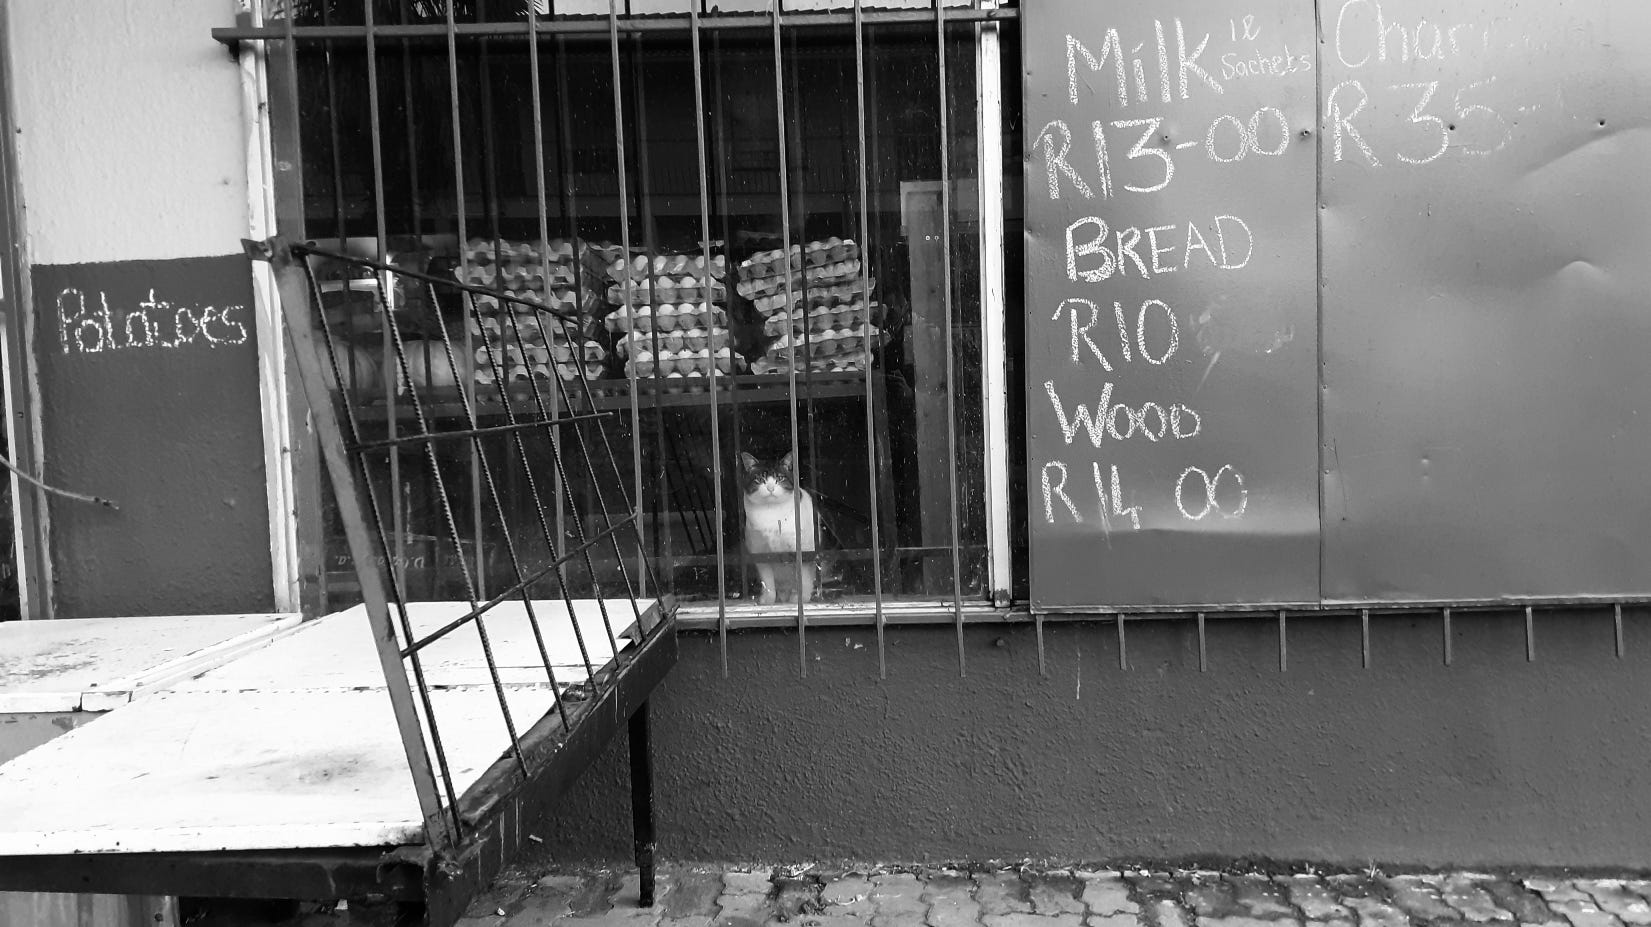 Potatoes
Milk 1l
Sachets
R13-00
BREAD
R10
WOOD
R14 00
R35-